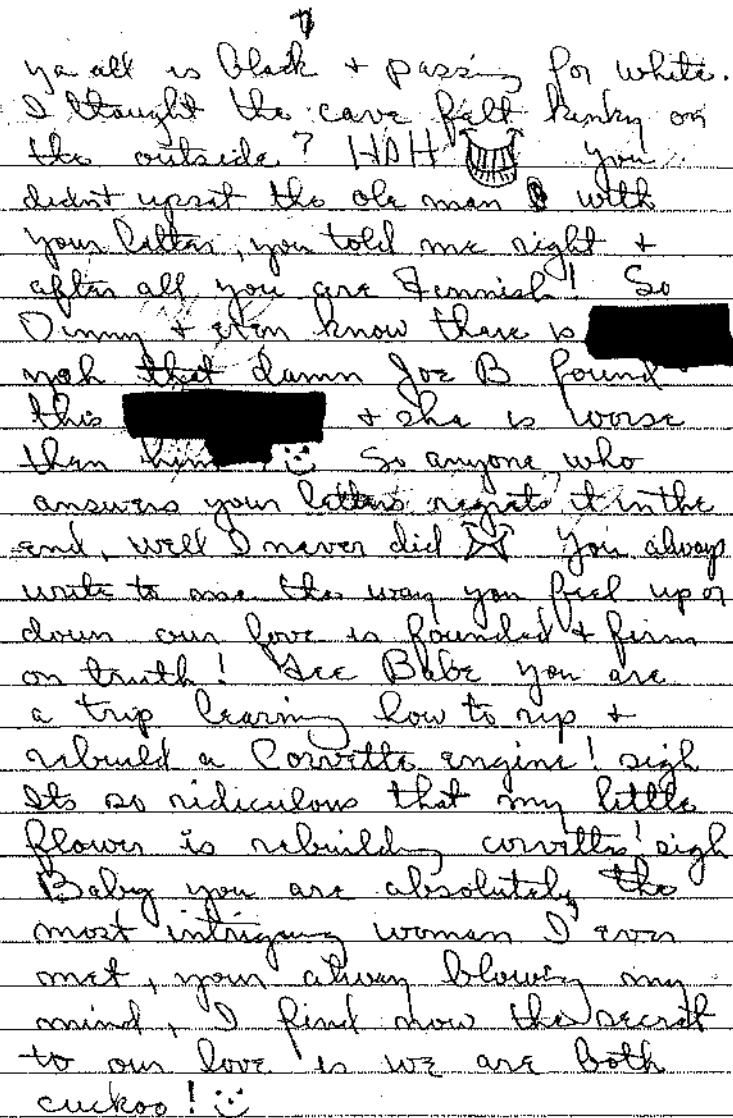 7
ya all is black + passing for white.
I thought the cave felt kinky on
the outside? HAH you
didn't upset the ole man with
your letter, you told me right +
after all you are Finnish! So
Dinny + even know there is
yah that damn Joe B found
this + she is worse
then him So anyone who
answers your letters regrets it in the
end, well I never did You always
write to me the way you feel up or
down our love is founded + firm
on truth! See Babe you are
a trip learning how to rip +
rebuild a Corvette engine! sigh
Its so ridiculous that my little
flower is rebuilding corvetts! sigh
Baby you are absolutely the
most intriguing woman I ever
met, your alway blowing my
mind, I find now the secret
to our love is we are both
cuckoo!